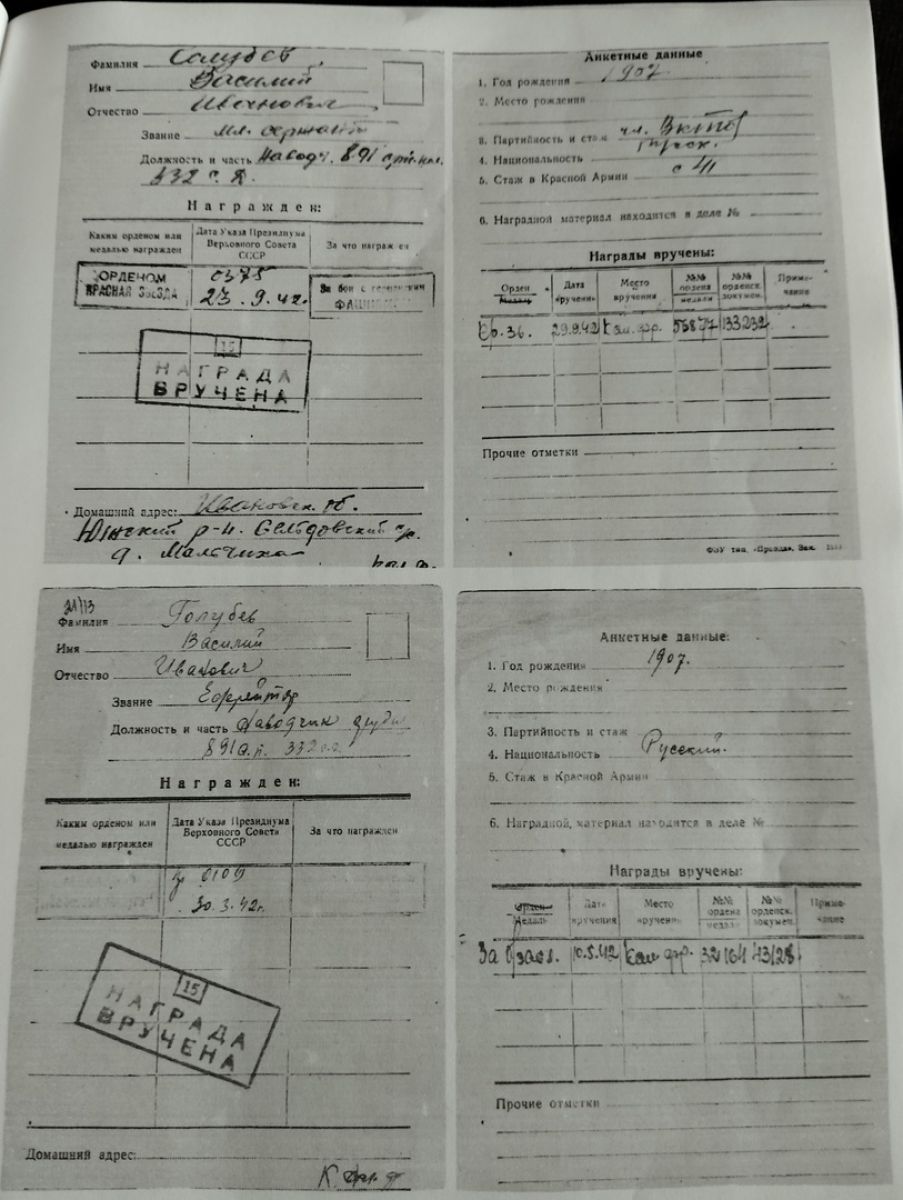 Фамилия Голубев
Имя Василий
Отчество Иванович
Звание мл. сержант
Должность и часть Наводч. 891 арт. пол.
332 с. д.
Награжден:
Каким орденом или медалью награжден
Дата Указа Президиума Верховного Совета СССР
За что награжден
ОРДЕНОМ
КРАСНАЯ ЗВЕЗДА
0375
23.9.42.
За бои с германским
15
НАГРАДА
ВРУЧЕНА
Домашний адрес: Ивановск. об.
Южский р-н.
д.
Анкетные данные
1. Год рождения 1907.
2. Место рождения
3. Партийность и стаж чл. ВКПб
4. Национальность русск.
5. Стаж в Красной Армии с 41
6. Наградной материал находится в деле №
Награды вручены:
Орден Медаль
Дата вручения
Место вручения
№№ ордена медали
№№ орденск. докумен.
Приме-чание
Кр. Зв. 29.9.42 Кал. фр. 56877 133232
Прочие отметки
ФЗУ тип. «Правда». Зак.
21/13
Фамилия Голубев
Имя Василий
Отчество Иванович
Звание Ефрейтор
Должность и часть Наводчик орудия
891 а.п. 332 с.д.
Награжден:
Каким орденом или медалью награжден
Дата Указа Президиума Верховного Совета СССР
За что награжден
0109
30.3.42г.
15
НАГРАДА
ВРУЧЕНА
Домашний адрес:
Анкетные данные:
1. Год рождения 1907.
2. Место рождения
3. Партийность и стаж
4. Национальность Русский.
5. Стаж в Красной Армии
6. Наградной материал находится в деле №
Награды вручены:
Орден Медаль
Дата вручения
Место вручения
№№ ордена медали
№№ орденск. докумен.
Приме-чание
За 10.5.42 Кал. фр. 32164 43128
Прочие отметки